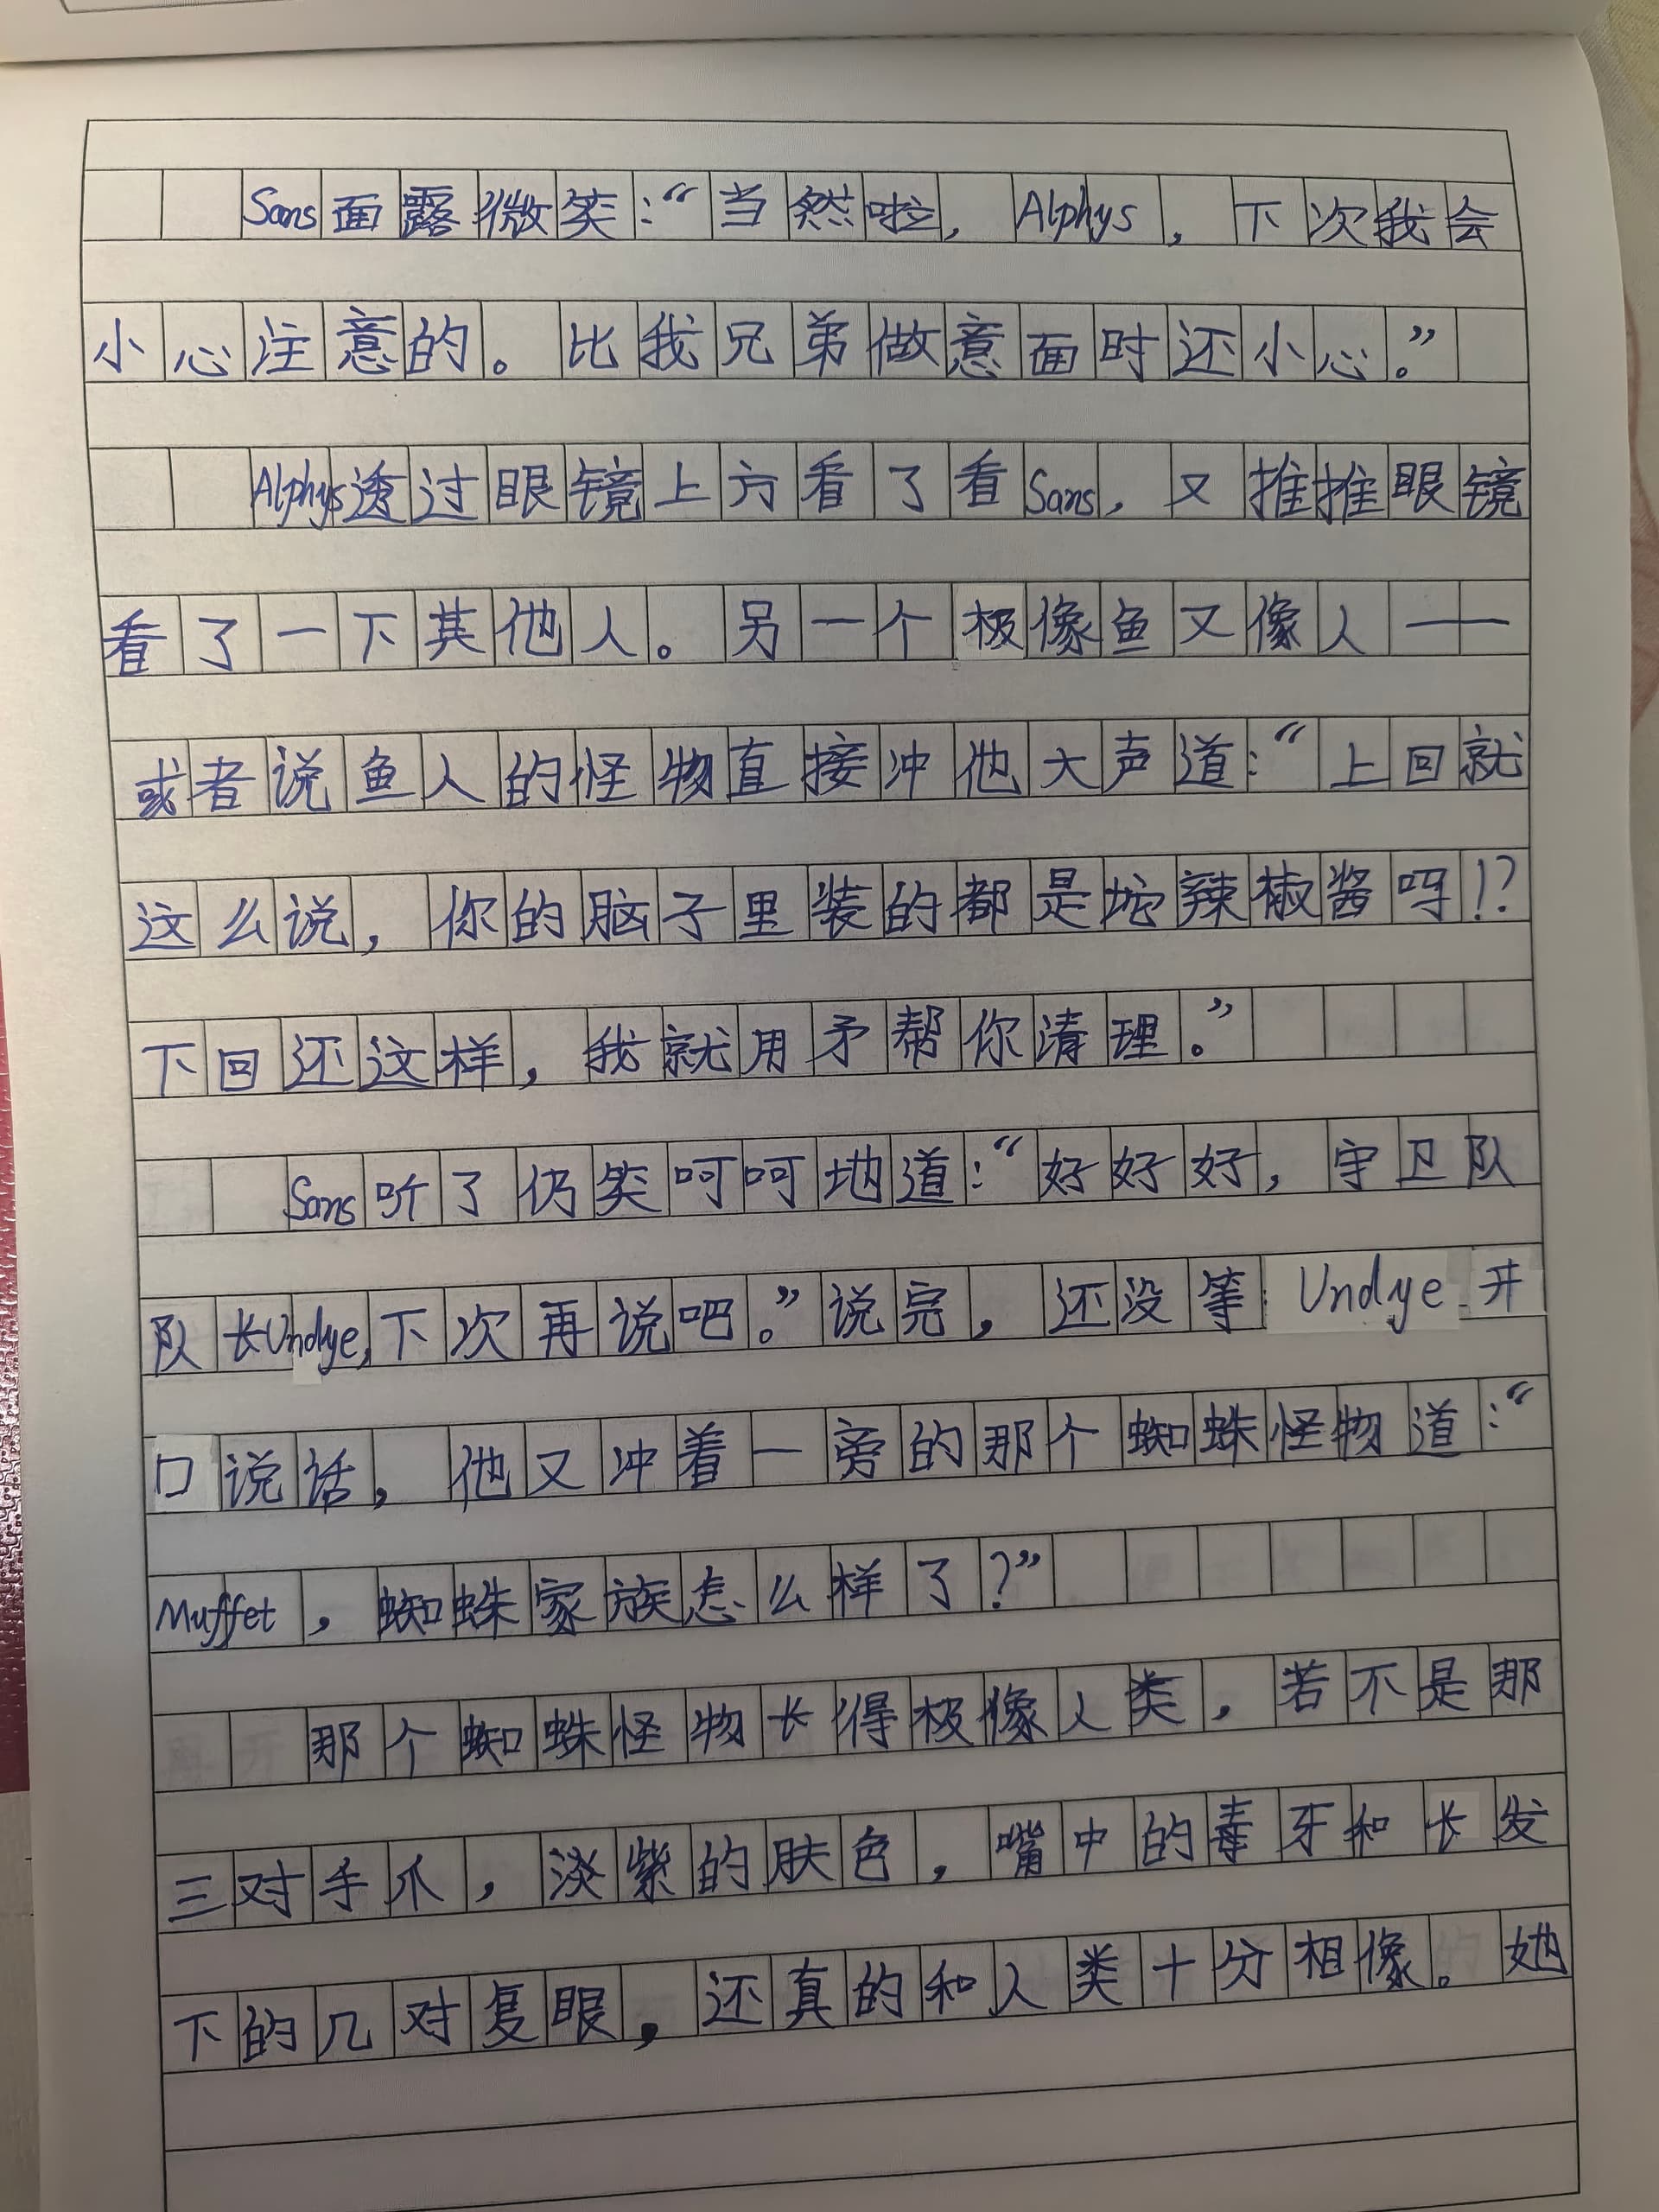 Sans面露微笑：“当然啦，Alphys，下次我会
小心注意的。比我兄弟做意面时还小心。”
Alphys透过眼镜上方看了看Sans，又推推眼镜
看了一下其他人。另一个极像鱼又像人——
或者说鱼人的怪物直接冲他大声道：“上回就
这么说，你的脑子里装的都是坨辣椒酱吗！？
下回还这样，我就用矛帮你清理。”
Sans听了仍笑呵呵地道：“好好好，守卫队
队长Undye，下次再说吧。”说完，还没等Undye开
口说话，他又冲着一旁的那个蜘蛛怪物道：“
Muffet，蜘蛛家族怎么样了？”
那个蜘蛛怪物长得极像人类，若不是那
三对手爪，淡紫的肤色，嘴中的毒牙和长发
下的几对复眼，还真的和人类十分相像。她